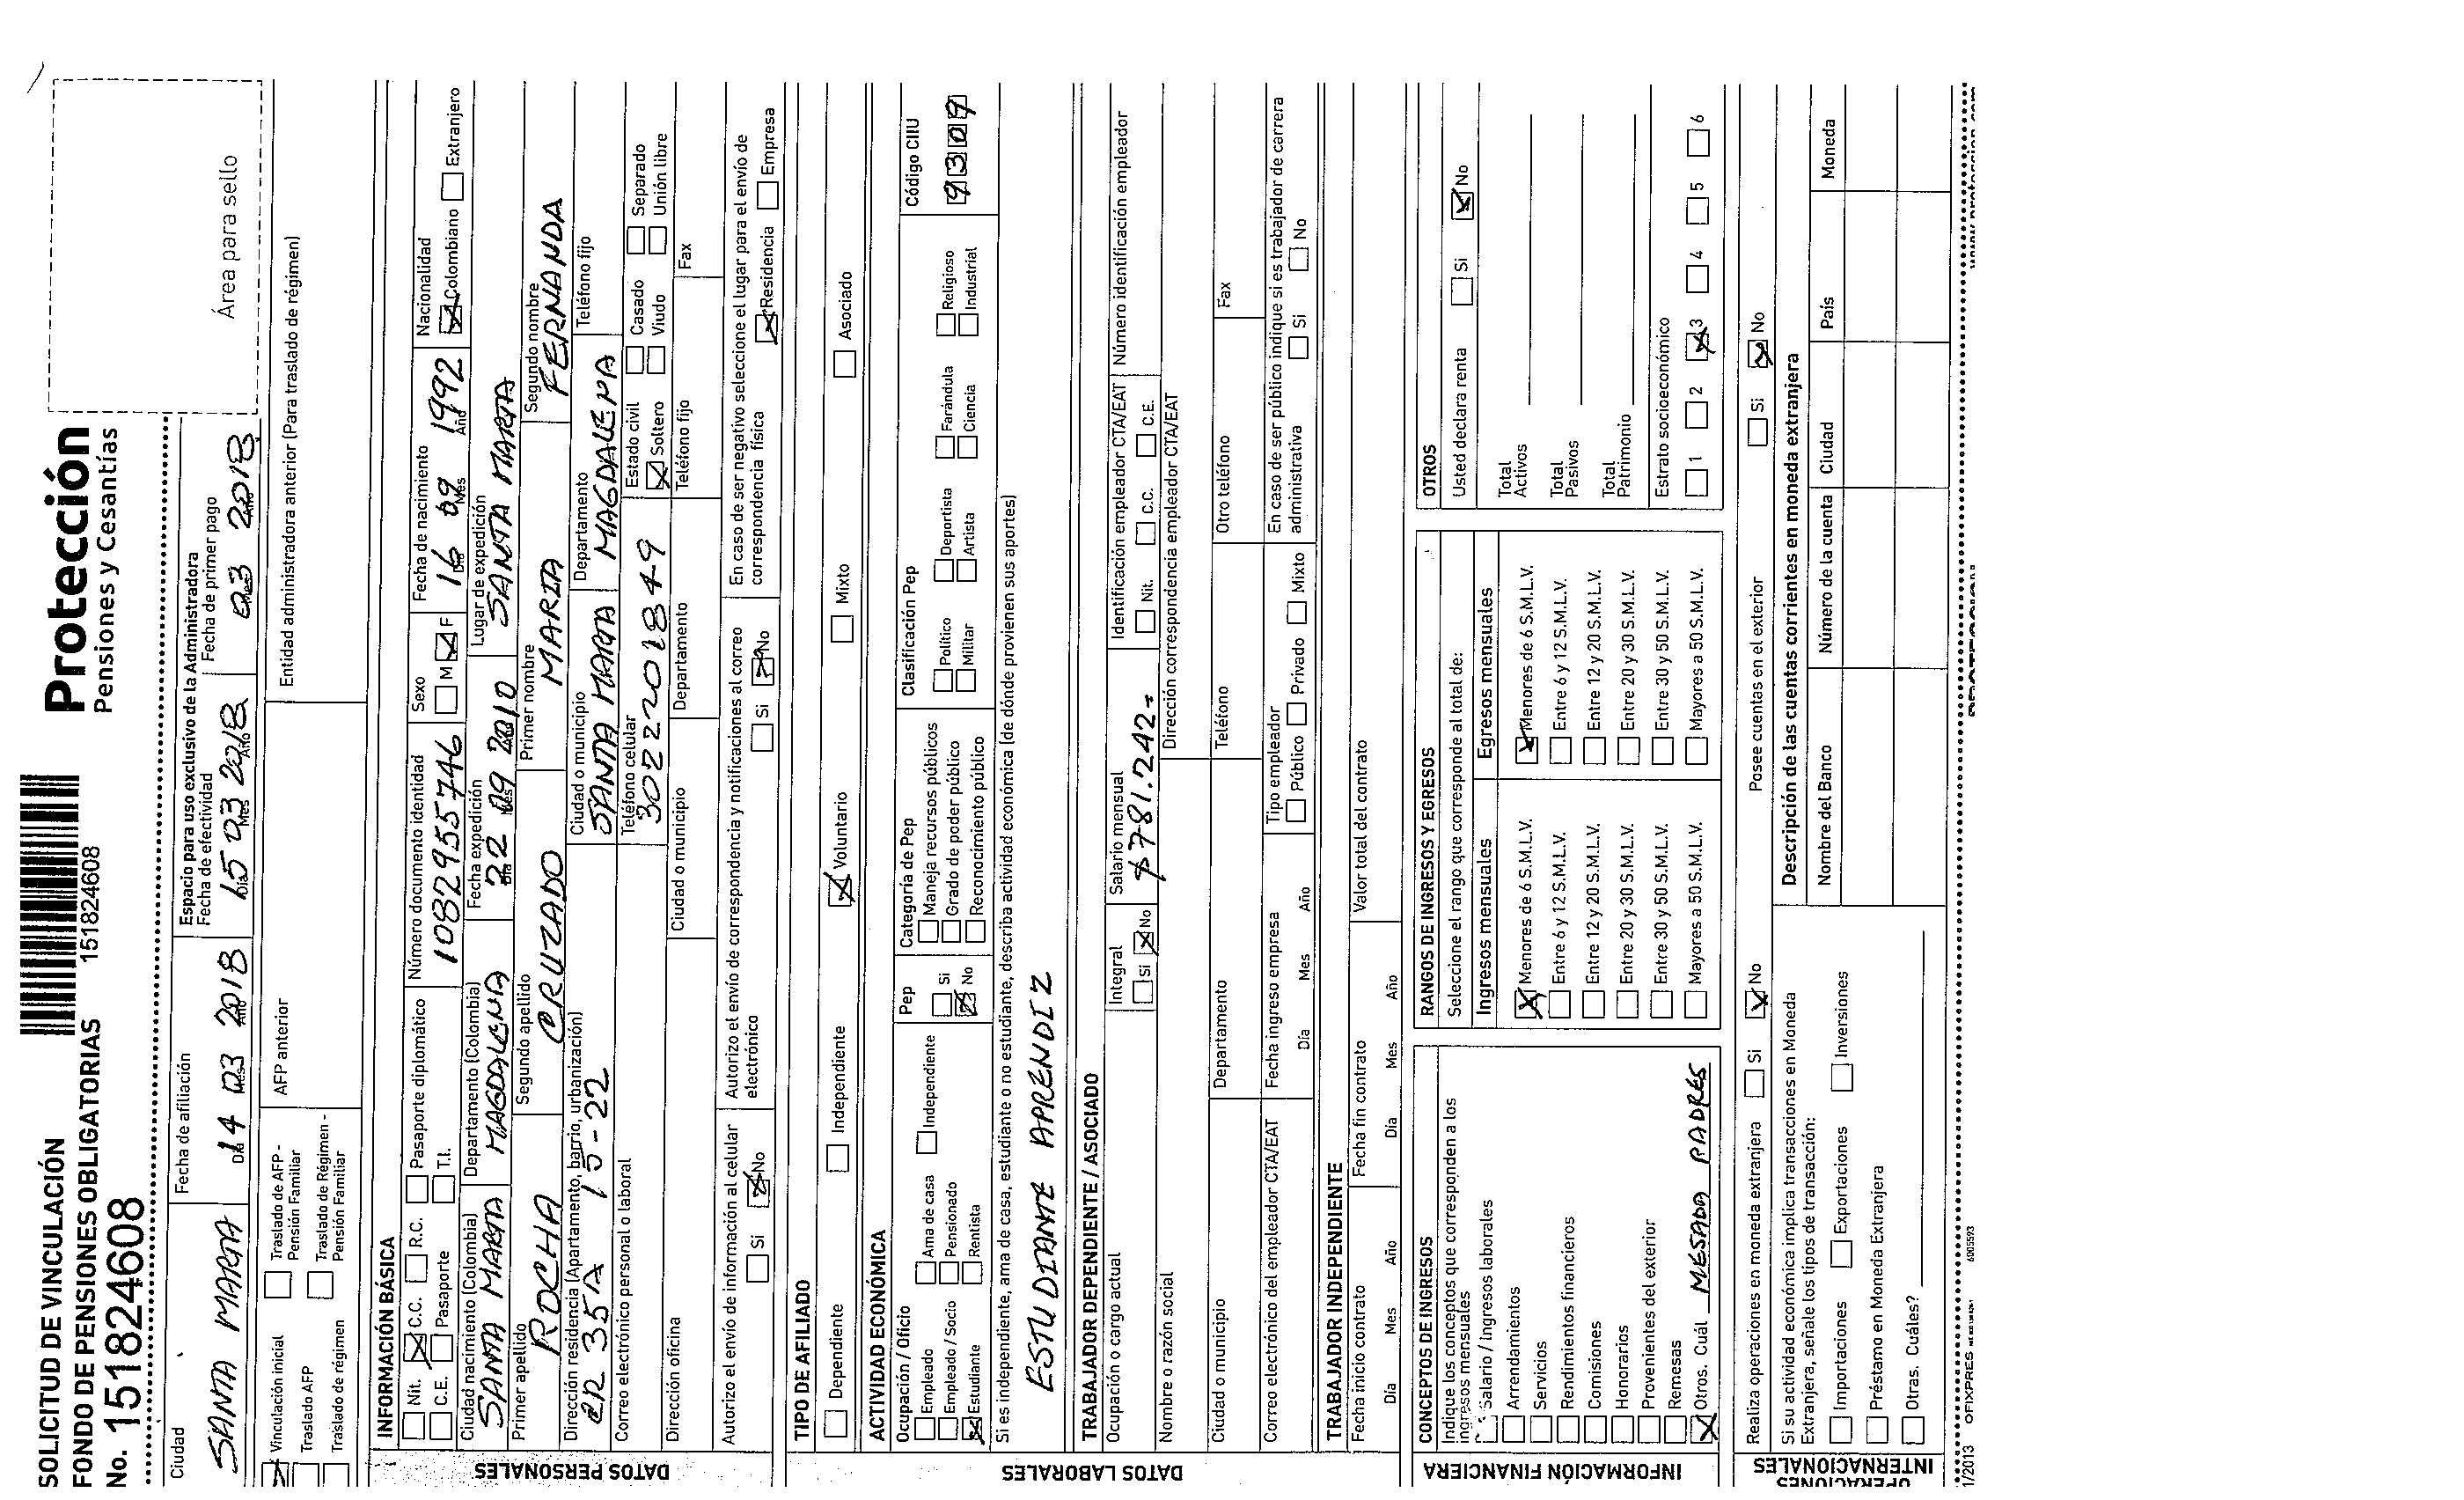 SOLICITUD DE VINCULACIÓN
FONDO DE PENSIONES OBLIGATORIAS 151824608
No. 151824608
Protección
Pensiones y Cesantías
Área para sello
Ciudad SANTA MARTA
Fecha de afiliación Día 14 Mes 03 Año 2018
Espacio para uso exclusivo de la Administradora
Fecha de efectividad Día 15 Mes 03 Año 2018
Fecha de primer pago Mes 03 Año 2018
Vinculación inicial
Traslado AFP
Traslado de régimen
Traslado de AFP - Pensión Familiar
Traslado de Régimen - Pensión Familiar
AFP anterior
Entidad administradora anterior (Para traslado de régimen)
DATOS PERSONALES
INFORMACIÓN BÁSICA
Nit. C.C. R.C. Pasaporte diplomático
C.E. Pasaporte T.I.
Número documento identidad 1082955746
Sexo M F
Fecha de nacimiento Día 16 Mes 09 Año 1992
Nacionalidad Colombiano Extranjero
Ciudad nacimiento (Colombia) SANTA MARTA
Departamento (Colombia) MAGDALENA
Fecha expedición Día 22 Mes 09 Año 2010
Lugar de expedición SANTA MARTA
Primer apellido ROCHA
Segundo apellido CRUZADO
Primer nombre MARIA
Segundo nombre FERNANDA
Dirección residencia (Apartamento, barrio, urbanización) CR 35A 15-22
Ciudad o municipio SANTA MARTA
Departamento MAGDALENA
Teléfono fijo
Correo electrónico personal o laboral
Teléfono celular 3022201849
Estado civil Soltero Casado Viudo Separado Unión libre
Dirección oficina
Ciudad o municipio
Departamento
Teléfono fijo
Fax
Autorizo el envío de información al celular Si No
Autorizo el envío de correspondencia y notificaciones al correo electrónico Si No
En caso de ser negativo seleccione el lugar para el envío de correspondencia física Residencia Empresa
TIPO DE AFILIADO
Dependiente Independiente Voluntario Mixto Asociado
DATOS LABORALES
ACTIVIDAD ECONÓMICA
Ocupación / Oficio
Empleado Ama de casa Independiente
Empleado / Socio Pensionado
Estudiante Rentista
Pep Si No
Categoría de Pep
Maneja recursos públicos
Grado de poder público
Reconocimiento público
Clasificación Pep
Político Deportista Farándula Religioso
Militar Artista Ciencia Industrial
Código CIIU 9309
Si es independiente, ama de casa, estudiante o no estudiante, describa actividad económica (de dónde provienen sus aportes)
ESTUDIANTE APRENDIZ
TRABAJADOR DEPENDIENTE / ASOCIADO
Ocupación o cargo actual
Integral Si No
Salario mensual $781.242=
Identificación empleador CTA/EAT Nit. C.C. C.E.
Número identificación empleador
Nombre o razón social
Dirección correspondencia empleador CTA/EAT
Ciudad o municipio
Departamento
Teléfono
Otro teléfono
Fax
Correo electrónico del empleador CTA/EAT
Fecha ingreso empresa Día Mes Año
Tipo empleador Público Privado Mixto
En caso de ser público indique si es trabajador de carrera administrativa Si No
TRABAJADOR INDEPENDIENTE
Fecha inicio contrato Día Mes Año
Fecha fin contrato Día Mes Año
Valor total del contrato
INFORMACIÓN FINANCIERA
CONCEPTOS DE INGRESOS
Indique los conceptos que corresponden a los ingresos mensuales
Salario / Ingresos laborales
Arrendamientos
Servicios
Rendimientos financieros
Comisiones
Honorarios
Provenientes del exterior
Remesas
Otros. Cuál MESADA PADRES
RANGOS DE INGRESOS Y EGRESOS
Seleccione el rango que corresponde al total de:
Ingresos mensuales Egresos mensuales
Menores de 6 S.M.L.V. Menores de 6 S.M.L.V.
Entre 6 y 12 S.M.L.V. Entre 6 y 12 S.M.L.V.
Entre 12 y 20 S.M.L.V. Entre 12 y 20 S.M.L.V.
Entre 20 y 30 S.M.L.V. Entre 20 y 30 S.M.L.V.
Entre 30 y 50 S.M.L.V. Entre 30 y 50 S.M.L.V.
Mayores a 50 S.M.L.V. Mayores a 50 S.M.L.V.
OTROS
Usted declara renta Si No
Total Activos
Total Pasivos
Total Patrimonio
Estrato socioeconómico
1 2 3 4 5 6
OPERACIONES INTERNACIONALES
Realiza operaciones en moneda extranjera Si No
Posee cuentas en el exterior Si No
Si su actividad económica implica transacciones en Moneda Extranjera, señale los tipos de transacción:
Importaciones Exportaciones Inversiones
Préstamo en Moneda Extranjera
Otras. Cuáles?
Descripción de las cuentas corrientes en moneda extranjera
Nombre del Banco Número de la cuenta Ciudad País Moneda
1/2013 OFIXPRES